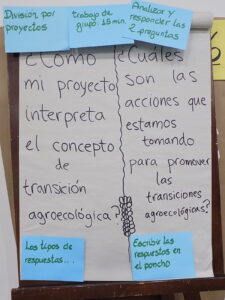 División por
proyectos
trabajo de
grupo 15 min
Analizar y
responder las
2 preguntas
¿Cómo
mi proyecto
interpreta
el concepto
de
transición
agroecológica?
¿Cuáles
son las
acciones que
estamos
tomando
para promover
las
transiciones
agroecológicas?
Los tipos de
respuestas...
Escribir las
respuestas en
el poncho